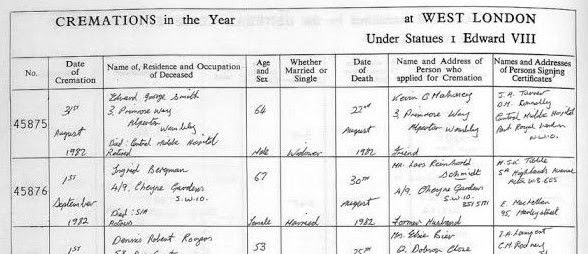 CREMATIONS in the Year
at WEST LONDON
Under Statues 1 Edward VIII
No.
Date of Cremation
Name of, Residence and Occupation of Deceased
Age and Sex
Whether Married or Single
Date of Death
Name and Address of Person who applied for Cremation
Names and Addresses of Persons Signing Certificates
45875
31st August 1982
Edward George Smith
3, Primrose Way
Alperton
Wembley
Died: Central Middx Hospital
Retired
64
Male
Widower
22nd August 1982
Kevin C Mahoney
3, Primrose Way
Alperton Wembley
Friend
J.A. Tanner
Central Middx Hospital
Park Royal London
N.W.10.
45876
1st September 1982
Ingrid Bergman
4/9, Cheyne Gardens
S.W.10.
Died: S/A
67
Female
Married
30th August 1982
Mr. Lars Reinhold
Schmidt
4/9, Cheyne Gardens
S.W.10.
Former Husband
5th Highlands Avenue
E. MacLellan
95, Harley Street
1st
Dennis Robert Rogers
53
25th
Mrs Elsie
2, Dobson Close
C.M. Rodney